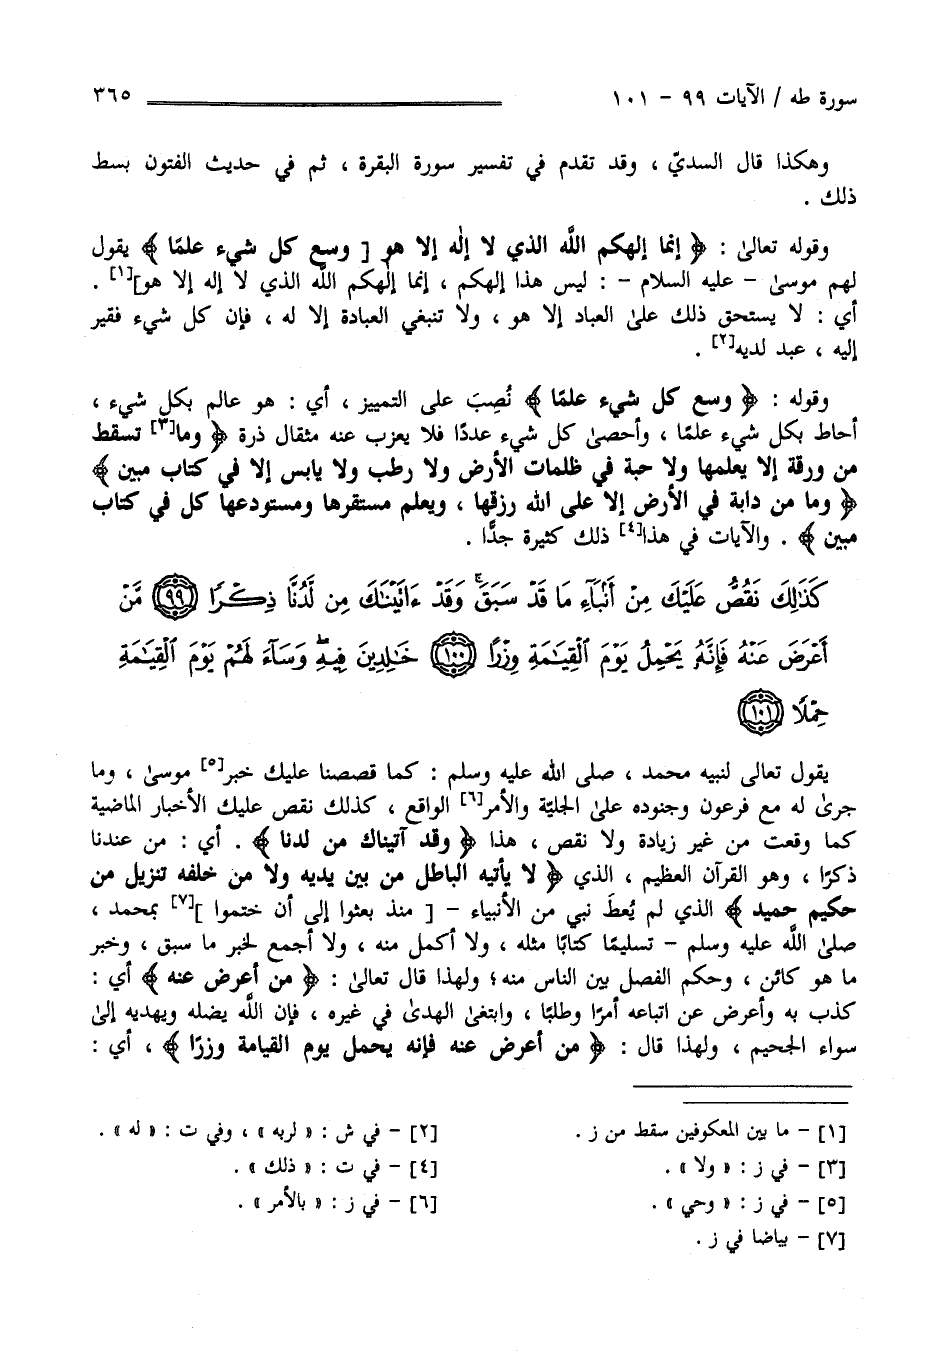 سورة طه / الآيات ٩٩ - ١٠١ ٣٦٥
وهكذا قال السديّ ، وقد تقدم في تفسير سورة البقرة ، ثم في حديث الفتون بسط
ذلك .
وقوله تعالىٰ : ﴿ إنما إلهكم اللَّه الذي لا إلٰه إلا هو [ وسع كل شيء علمًا ﴾ يقول
لهم موسىٰ - عليه السلام - : ليس هذا إلهكم ، إنما إلٰهكم اللَّه الذي لا إله إلا هو][١] .
أي : لا يستحق ذلك علىٰ العباد إلا هو ، ولا تنبغي العبادة إلا له ، فإن كل شيء فقير
إليه ، عبد لديه[٢] .
وقوله : ﴿ وسع كل شيء علمًا ﴾ نُصِبَ على التمييز ، أي : هو عالم بكل شيء ،
أحاط بكل شيء علمًا ، وأحصىٰ كل شيء عددًا فلا يعزب عنه مثقال ذرة ﴿ وما[٣] تسقط
من ورقة إلا يعلمها ولا حبة في ظلمات الأرض ولا رطب ولا يابس إلا في كتاب مبين ﴾
﴿ وما من دابة في الأرض إلا على الله رزقها ، ويعلم مستقرها ومستودعها كل في كتاب
مبين ﴾ . والآيات في هذا[٤] ذلك كثيرة جدًّا .
كَذَٰلِكَ نَقُصُّ عَلَيْكَ مِنْ أَنۢبَآءِ مَا قَدْ سَبَقَۚ وَقَدْ ءَاتَيْنَٰكَ مِن لَّدُنَّا ذِكْرًا ٩٩ مَّنْ
أَعْرَضَ عَنْهُ فَإِنَّهُۥ يَحْمِلُ يَوْمَ ٱلْقِيَٰمَةِ وِزْرًا ١٠٠ خَٰلِدِينَ فِيهِۖ وَسَآءَ لَهُمْ يَوْمَ ٱلْقِيَٰمَةِ
حِمْلًا ١٠١
يقول تعالى لنبيه محمد ، صلى الله عليه وسلم : كما قصصنا عليك خبر[٥] موسىٰ ، وما
جرىٰ له مع فرعون وجنوده علىٰ الجليّة والأمر[٦] الواقع ، كذلك نقص عليك الأخبار الماضية
كما وقعت من غير زيادة ولا نقص ، هذا ﴿ وقد آتيناك من لدنا ﴾ . أي : من عندنا
ذكرًا ، وهو القرآن العظيم ، الذي ﴿ لا يأتيه الباطل من بين يديه ولا من خلفه تنزيل من
حكيم حميد ﴾ الذي لم يُعطَ نبي من الأنبياء - [ منذ بعثوا إلى أن ختموا ][٧] بمحمد ،
صلىٰ اللَّه عليه وسلم - تسليمًا كتابًا مثله ، ولا أكمل منه ، ولا أجمع لخبر ما سبق ، وخبر
ما هو كائن ، وحكم الفصل بين الناس منه؛ ولهذا قال تعالىٰ : ﴿ من أعرض عنه ﴾ أي :
كذب به وأعرض عن اتباعه أمرًا وطلبًا ، وابتغىٰ الهدىٰ في غيره ، فإن اللَّه يضله ويهديه إلىٰ
سواء الجحيم ، ولهذا قال : ﴿ من أعرض عنه فإنه يحمل يوم القيامة وزرًا ﴾ ، أي :
[١] - ما بين المعكوفين سقط من ز . [٢] - في ش : « لربه » ، وفي ت : « له » .
[٣] - في ز : « ولا » . [٤] - في ت : « ذلك » .
[٥] - في ز : « وحي » . [٦] - في ز : « بالأمر » .
[٧] - بياضا في ز .